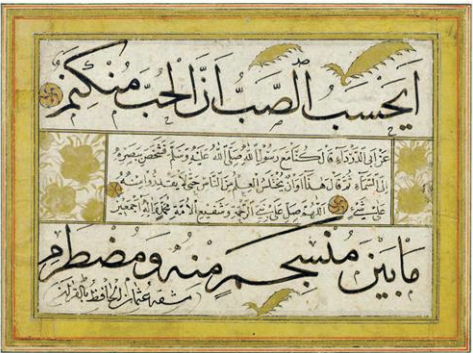 أَيَحْسَبُ الصَّبُّ أَنَّ الْحُبَّ مُنْكَتِمٌ
عَنْ أَبِي الدَّرْدَاءِ قَالَ كُنَّا مَعَ رَسُولِ اللهِ صَلَّى اللهُ عَلَيْهِ وَسَلَّمَ فَشَخَصَ بِبَصَرِهِ
إِلَى السَّمَاءِ ثُمَّ قَالَ هَذَا أَوَانُ يُخْتَلَسُ الْعِلْمُ مِنَ النَّاسِ حَتَّى لَا يَقْدِرُوا مِنْهُ
عَلَى شَيْءٍ اللَّهُمَّ صَلِّ عَلَى نَبِيِّ الرَّحْمَةِ وَشَفِيعِ الْأُمَّةِ مُحَمَّدٍ وَآلِهِ أَجْمَعِينَ
مَا بَيْنَ مُنْسَجِمٍ مِنْهُ وَمُضْطَرِمِ
مشقه عثمان الحافظ القرآن